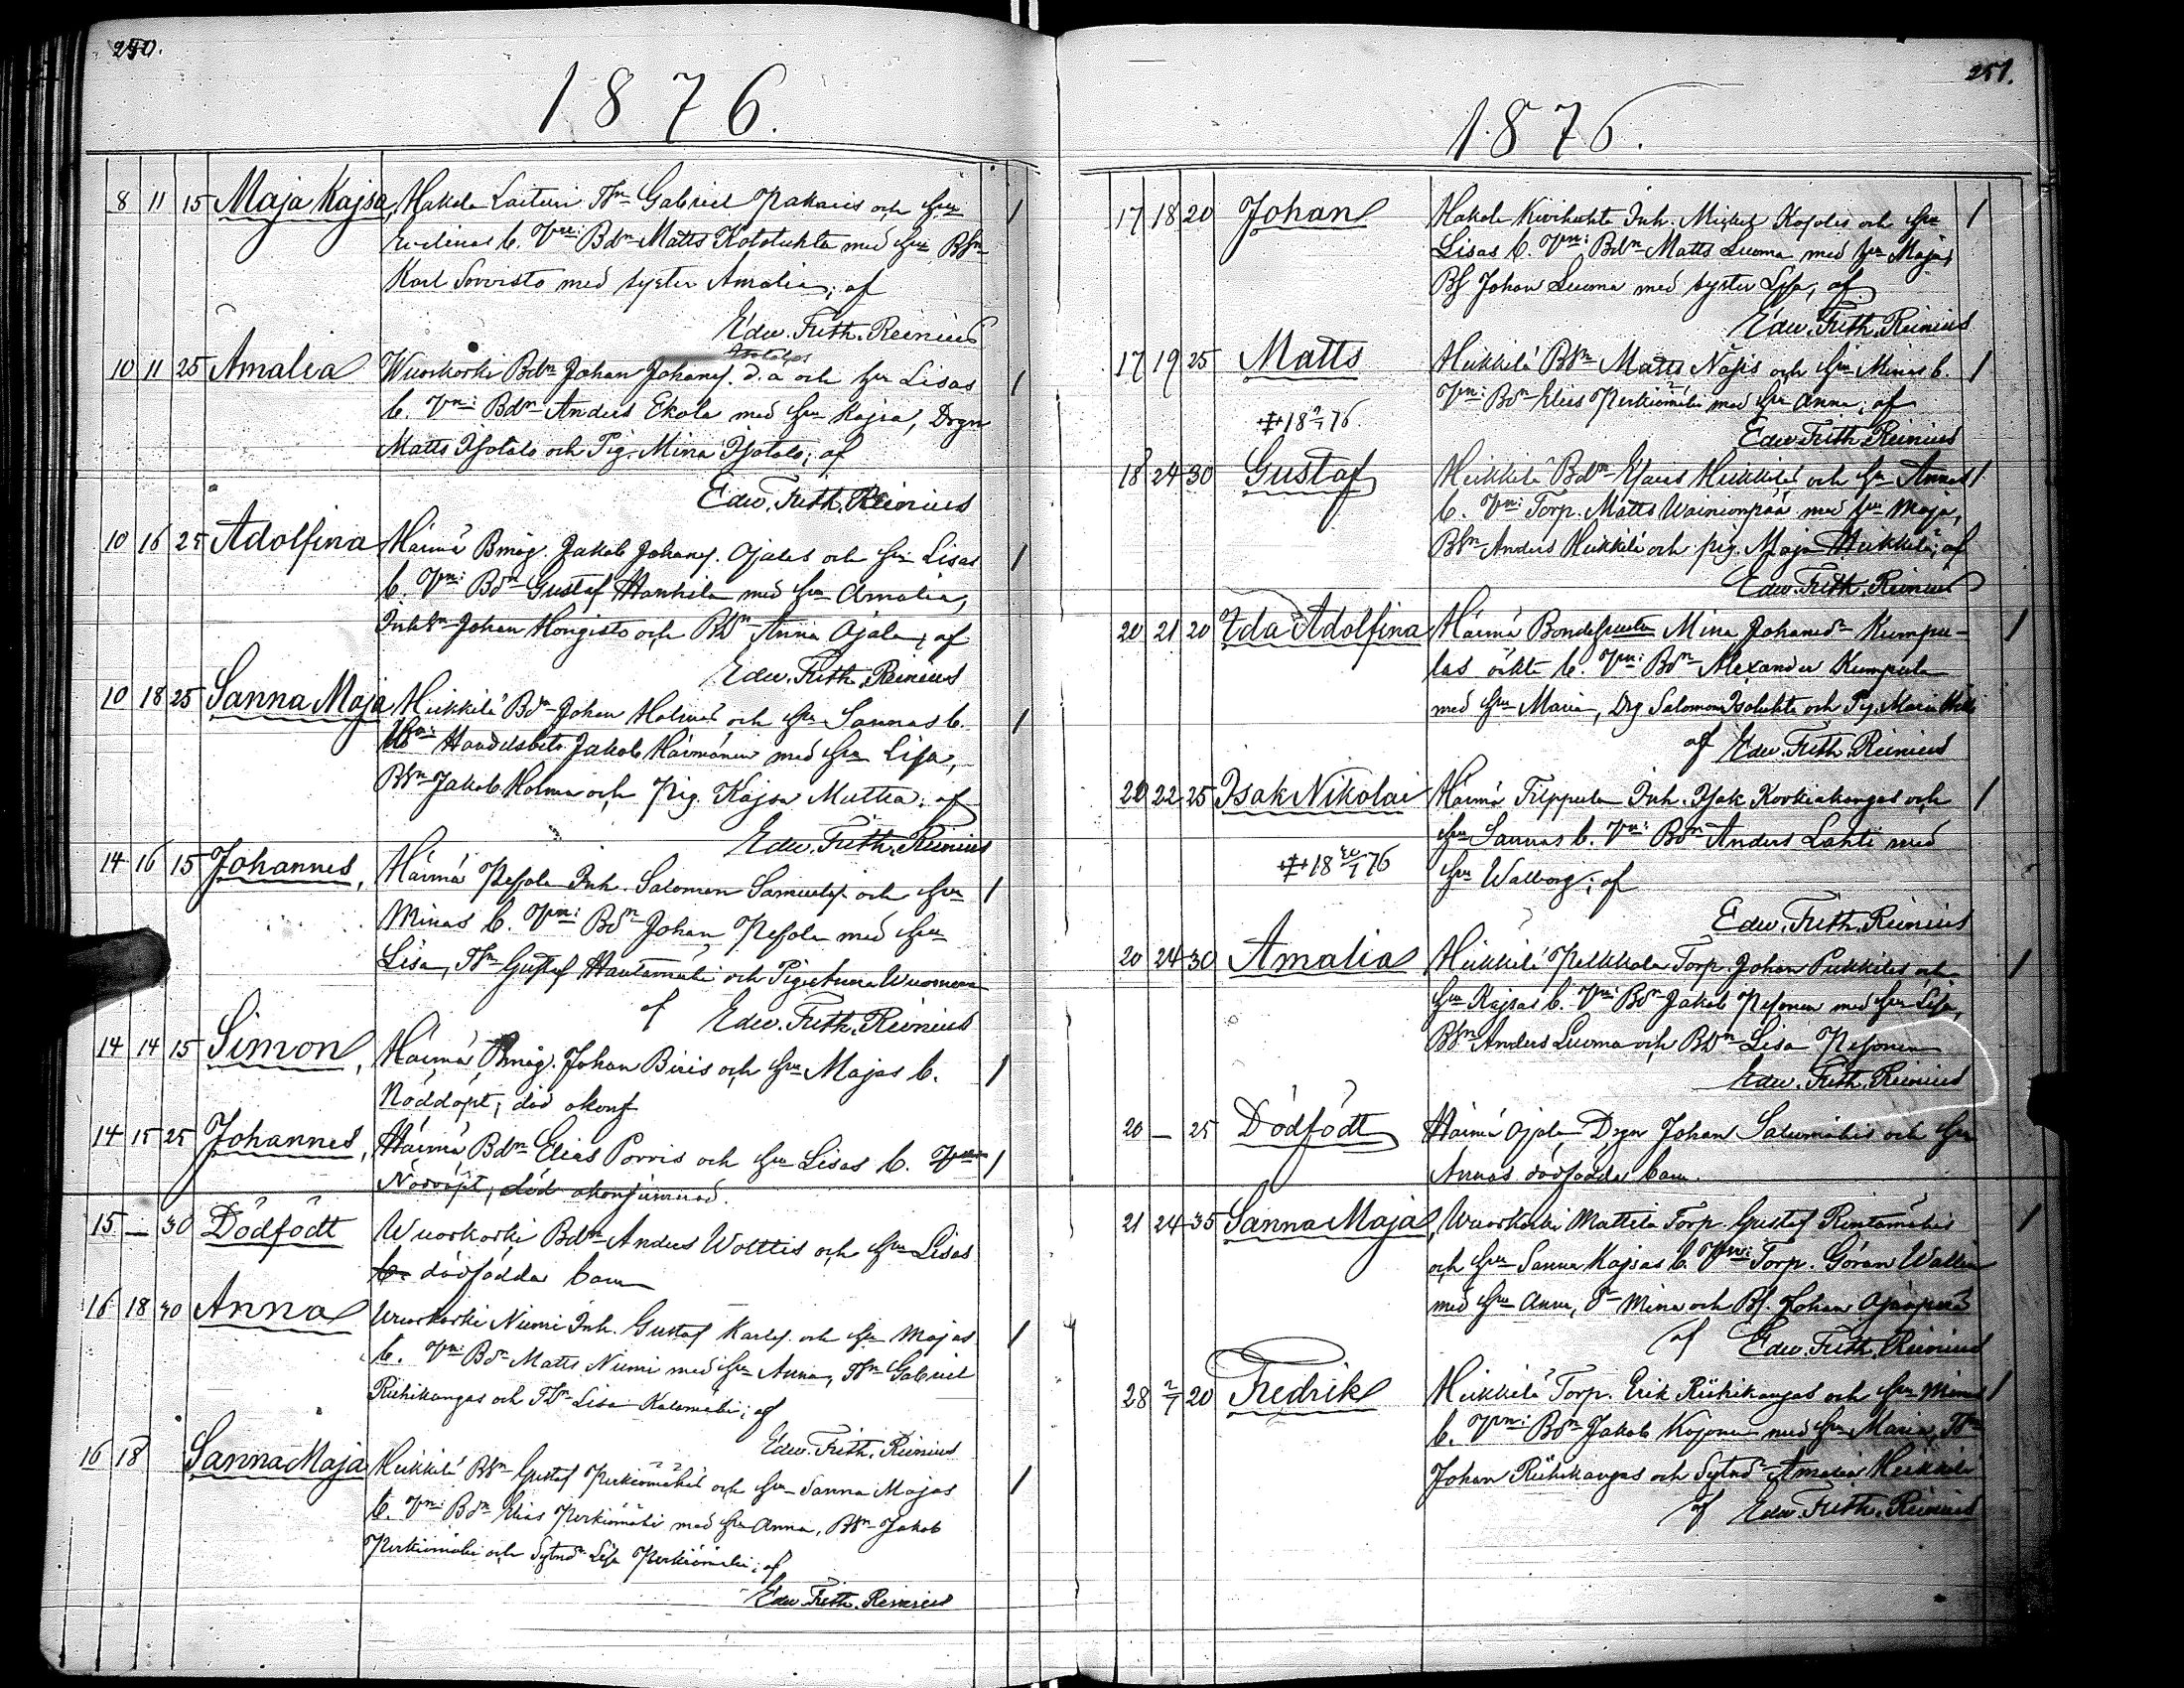 250.
1876.
8 11 15 Maja Kajsa, Hakola Laituri Tsn Gabriel Pakaris och hu
Evelinas b. Vne: Bdn Matts Kotoluhta med hu Bsn
Karl Sorvisto med syster Amalia; af
Edw. Frith. Reinius
Isotalos
10 11 25 Amalia Wuorkoski Bdn Johan Johans. d.ä och hu Lisas
b. Vne: Bdn Anders Ekola med hu Kajsa, Drgn
Matts Isotalo och Pig. Mina Isotalo; af
Edw. Frith. Reinius
10 16 25 Adolfina Härmä Bmåg. Jakob Johans. Ojalas och hu Lisas
b. Vne: Bdn Gustaf Hanhila med hu Amalia,
Inhsn Johan Hongisto och Bdn Anna Ojala; af
Edw. Frith. Reinius
10 18 25 Sanna Maja Heikkilä Bdn Johan Holmas och hu Sannas b.
Vne: Handelsbetr. Jakob Härmänen med hu Lisa,
Bsn Jakob Holma och Pig. Kajsa Mutka; af
Edw. Frith. Reinius
14 16 15 Johannes, Härmä Pesola Inh. Salomon Samuels. och hu
Minas b. Vne: Bdn Johan Pesola med hu
Lisa, Tsn Gustaf Hautamäki och Pig. Anna Wuorenmaa
af Edw. Frith. Reinius
14 14 15 Simon, Härmä Bmåg. Johan Biris och hu Majas b.
Nöddöpt; död okonf
14 15 25 Johannes, Härmä Bdn Elias Porris och hu Lisas b. Vne
Nöddöpt; död okonfirmerad.
15 — 30 Dödfödt Wuorkoski Bdn Anders Wolttis och hu Lisas
b. dödfödda barn
16 18 40 Anna Wuorkoski Niemi Inh. Gustaf Karls. och hu Majas
b. Vne: Bdn Matts Niemi med hu Anna, Tsn Gabriel
Riihikangas och Tdr Lisa Kalamäki; af
Edw. Frith. Reinius
16 18 Sanna Maja Heikkilä Bsn Gustaf Perkiömäkis och hu Sanna Majas
b. Vne: Bdn Elias Perkiömäki med hu Anna, Bsn Jakob
Perkiömäki och Sytnd Lisa Perkiömäki; af
Edw. Frith. Reinius
251.
1876.
17 18 20 Johan Hakola Kivihuhta Inh. Mickel Kosolas och hu
Lisas b. Vne: Bdn Matts Luoma med hu Maja,
Bs Johan Luoma med syster Lisa; af
Edw. Frith. Reinius
17 19 25 Matts Heikkilä Bsn Matts Näsis och hu Minas b.
Vne: Bdn Elias Perkiömäki med hu Anna; af
‡ 18 76.
Edw. Frith. Reinius
18 24 30 Gustaf Heikkilä Bdn Esaias Heikkiläs och hu Annas
b. Vne: Torp. Matts Wainionpää med hu Maja,
Bsn Anders Heikkilä och pig. Maja Heikkilä; af
Edw. Frith. Reinius
20 21 20 Ida Adolfina Härmä Bonde Mina Johansdr Kumpu-
las oäkta b. Vne: Bdn Alexander Kumpula
med hu Maria, Drg Salomon Isoluhta och Pig. Maria
af Edw. Frith. Reinius
20 22 25 Isak Nikolai Härmä Filppula Inh. Isak Korkiakangas och
hu Sannas b. Vne: Bdn Anders Lahti med
‡ 18 30/7 76 hu Walborg; af
Edw. Frith. Reinius
20 24 30 Amalia Heikkilä Pelkkala Torp. Johan Pukkilas och
hu Kajsas b. Vne: Bdn Jakob Pesonen med hu Lisa,
Bsn Anders Luoma och Bdn Lisa Pesonen
Edw. Frith. Reinius
20 — 25 Dödfödt Härmä Ojala Drgn Johan Salumäkis och hu
Annas dödfödda barn.
21 24 35 Sanna Maja, Wuorkoski Mattila Torp. Gustaf Rintamäkis
och hu Sanna Kajsas b. Vne: Torp. Göran Wallin
med hu Anna, Mina och Bs. Johan Ojanperä
af Edw. Frith. Reinius
28 2/7 20 Fredrik Heikkilä Torp. Erik Riihikangas och hu Minas
b. Vne: Bdn Jakob Kojonen med hu Maria, Tsn
Johan Riihikangas och Sytnd Amalia Heikkilä
af Edw. Frith. Reinius